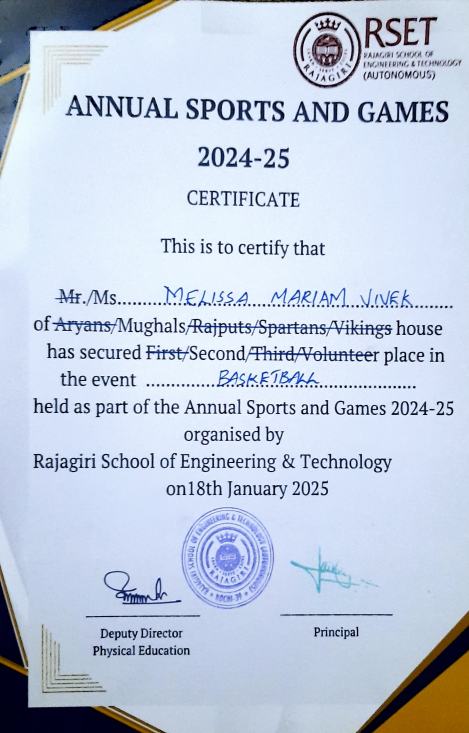 RSET
RAJAGIRI SCHOOL OF
ENGINEERING & TECHNOLOGY
(AUTONOMOUS)
RAJAGIRI
ANNUAL SPORTS AND GAMES
2024-25
CERTIFICATE
This is to certify that
Mr./Ms.....MELISSA MARIAM VIVEK.....
of Aryans/Mughals/Rajputs/Spartans/Vikings house
has secured First/Second/Third/Volunteer place in
the event .....BASKETBALL.....
held as part of the Annual Sports and Games 2024-25
organised by
Rajagiri School of Engineering & Technology
on18th January 2025
RAJAGIRI SCHOOL OF ENGINEERING & TECHNOLOGY (AUTONOMOUS)
KOCHI-39
RAJAGIRI
Deputy Director
Physical Education
Principal